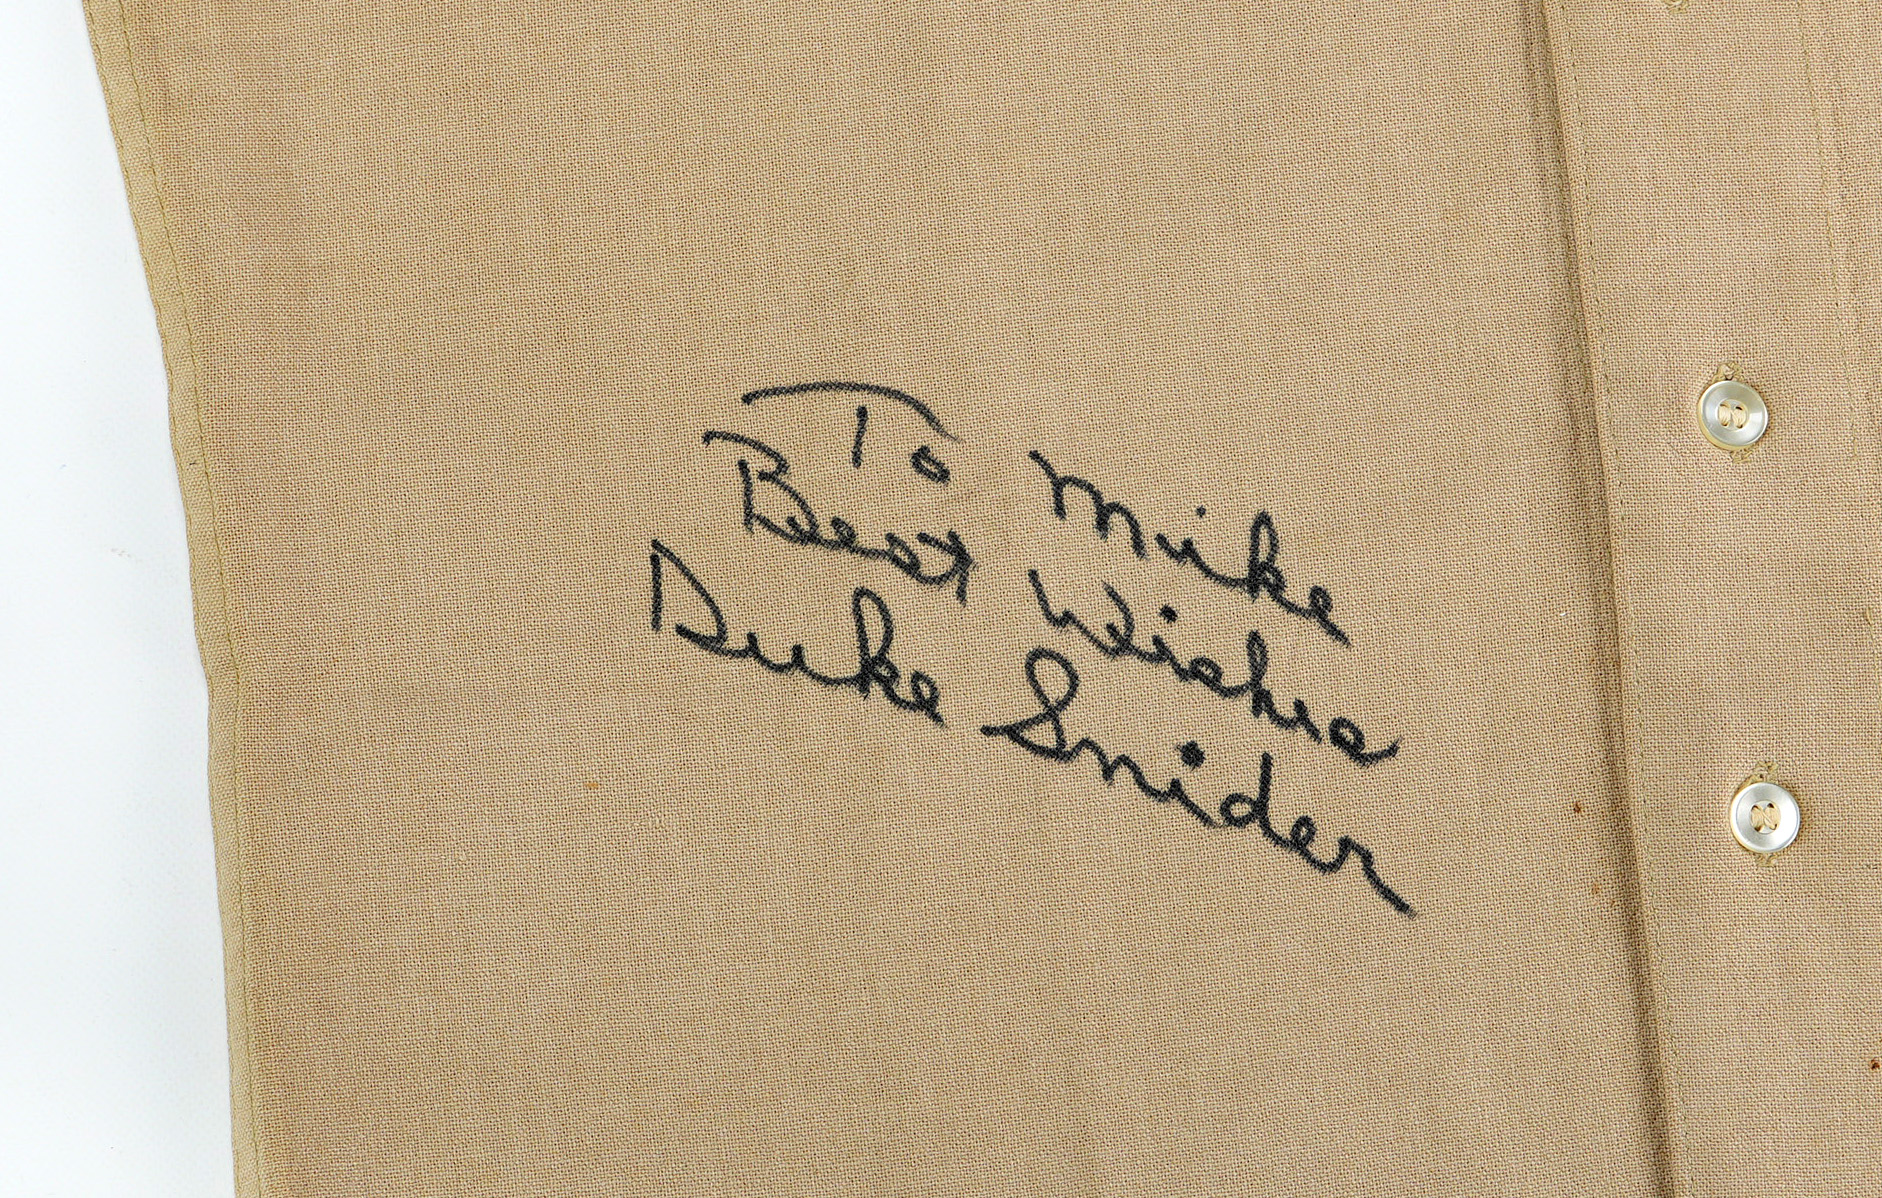 To Mike
Best Wishes
Duke Snider